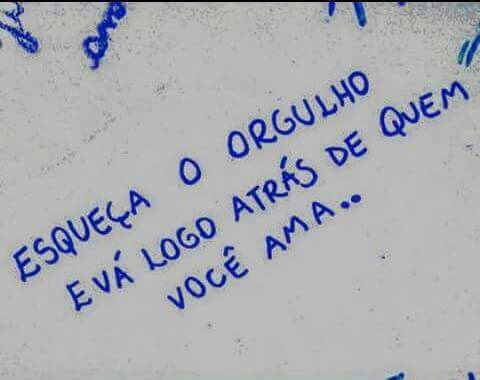 ESQUEÇA O ORGULHO
E VÁ LOGO ATRÁS DE QUEM
VOCÊ AMA..